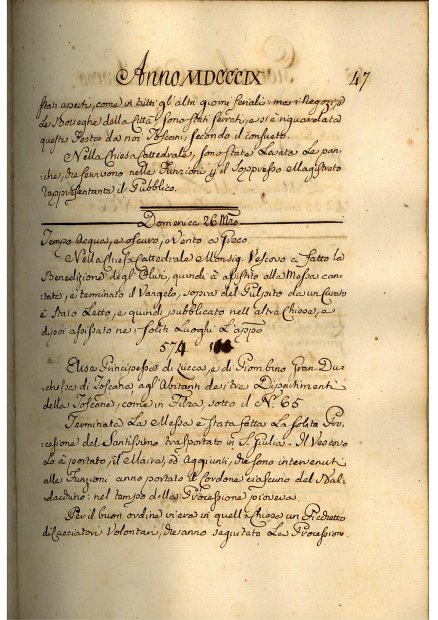 Anno MDCCCIX 47
stati aperti, come in tutti gl'altri giorni feriali: ma i Negozi, e
le Botteghe della Città sono stati serrati, e si è riguardata
questa Festa da noi Toscani, secondo il consueto.
Nella Chiesa Cattedrale, sono state Levate Le pan-
che, che servivano nelle Funzioni p il Soppresso Magistrato
rappresentante il Pubblico.
Domenica 26 Mzo
Tempo Acqua, e oscuro, Vento a Greco.
Nella Chiesa Cattedrale Monsig. Vescovo à fatto la
Benedizione degl'Olivi, quindi à assistito alla Messa can-
tata, e terminato il Vangelo, sopra del Pulpito da un Curato
è stato Letto, e quindi pubblicato nell'altre Chiese, e
dipoi affissato ne' soliti Luoghi L'appo
574
Elisa Principessa di Lucca, e di Piombino Gran-Du-
chessa di Toscana agl'Abitanti de i tre Dipartimenti
della Toscana, come in Filza, sotto il N. 65
Terminata La Messa è stata fatta La solita Pro-
cesione del Santissimo trasportato in S. Giulia. Il Vescovo
Lo à portato, il Maire, ed Aggiunti, che sono intervenuti
alle Funzioni anno portato il Cordone ciascuno del Bal-
dacchino: nel tempo della Processione pioveva.
Per il buon ordine vi era in quella Chiesa un Picchetto
di Cacciatori Volontari, che anno seguitato La Processione.